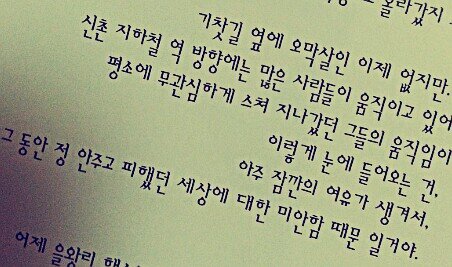 올라갔지
기찻길 옆에 오막살인 이제 없지만.
신촌 지하철 역 방향에는 많은 사람들이 움직이고 있어
평소에 무관심하게 스쳐 지나갔던 그들의 움직임이
이렇게 눈에 들어오는 건,
아주 잠깐의 여유가 생겨서,
그 동안 정 안주고 피했던 세상에 대한 미안함 때문 일거야.
어제 을왕리